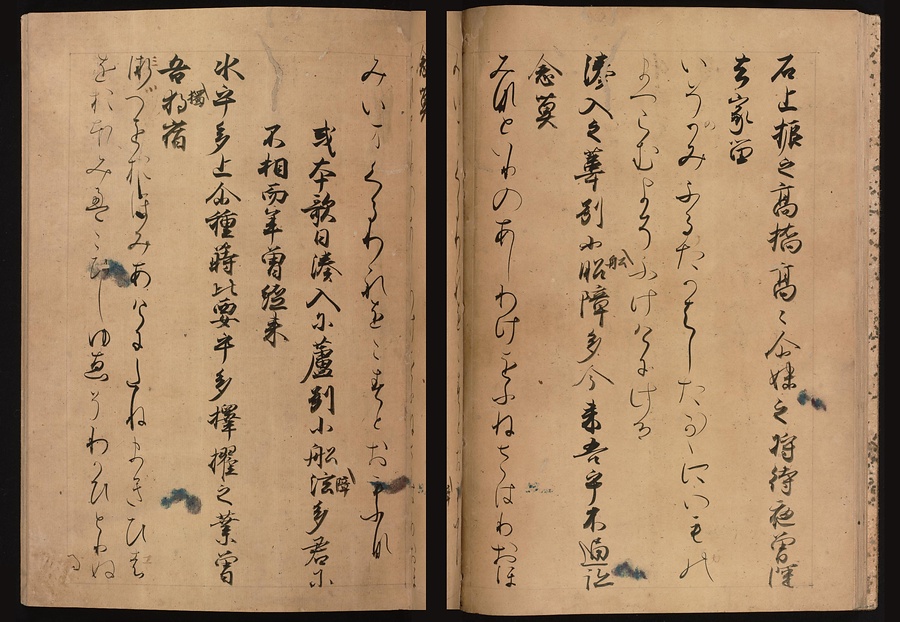 石上振之高橋高〻尓妹之将待夜曽深
去家留
いそのかみふるたかはしたか〱にいもの
まつらむよそふけにける
湊入之葦別小船障多今来吾乎不通跡
念莫
みなといりのあしわけをふねさはりおほ
みいまくるわれをこすとおもふな
或本歌曰湊入尓蘆別小船障多君尓
不相而年曽經来
水乎多上尓種蒔比要乎多擇擢之業曽
吾獨宿
みつをおほみあけにたねまきひえ
をおほみえ
しゆゑそわかひとりぬ
る